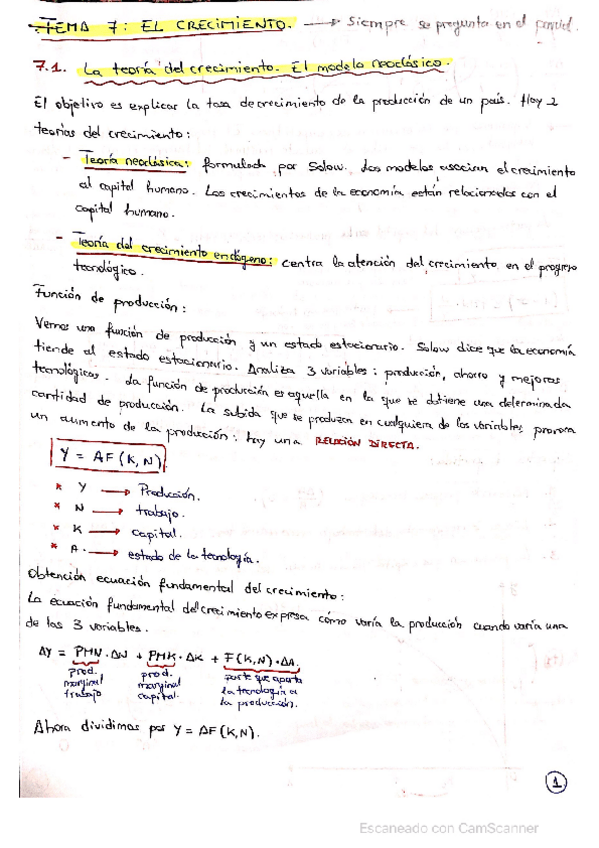 TEMA 7: EL CRECIMIENTO. → Siempre se pregunta en el parcial.
7.1. La teoría del crecimiento. El modelo neoclásico.
El objetivo es explicar la tasa de crecimiento de la producción de un país. Hay 2
teorías del crecimiento:
- Teoría neoclásica: formulada por Solow. Los modelos asocian el crecimiento
al capital humano. Los crecimientos de la economía están relacionados con el
capital humano.
- Teoría del crecimiento endógeno: centra la atención del crecimiento en el progreso
tecnológico.
Función de producción:
Vemos una función de producción y un estado estacionario. Solow dice que la economía
tiende al estado estacionario. Analiza 3 variables: producción, ahorro y mejoras
tecnológicas. La función de producción es aquella en la que se obtiene una determinada
cantidad de producción. La subida que se produzca en cualquiera de las variables provoca
un aumento de la producción: hay una RELACIÓN DIRECTA.
Y = AF(K,N)
* Y → Producción.
* N → trabajo.
* K → capital.
* A. → estado de la tecnología.
Obtención ecuación fundamental del crecimiento:
La ecuación fundamental del crecimiento expresa cómo varía la producción cuando varía una
de las 3 variables.
ΔY = PMN·ΔN + PMK·ΔK + F(K,N)·ΔA.
prod. marginal trabajo
prod. marginal capital.
parte que aporta la tecnología a la producción.
Ahora dividimos por Y = AF(K,N).
1
Escaneado con CamScanner